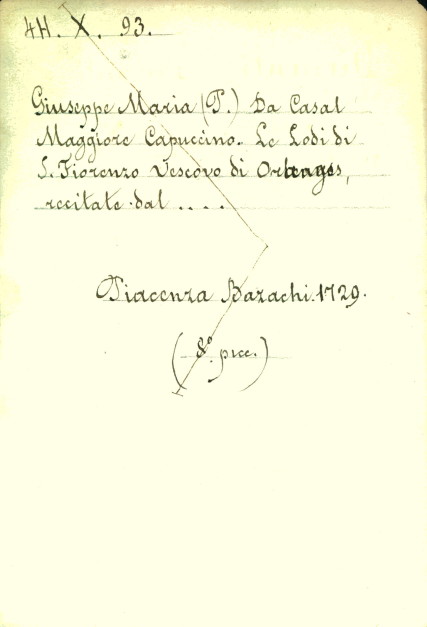 4H. X. 93.
Giuseppe Maria (P.) Da Casal
Maggiore Capuccino. Le Lodi di
S. Fiorenzo Vescovo di
recitate dal ....
Piacenza Bazachi. 1729.
(8º. picc.)